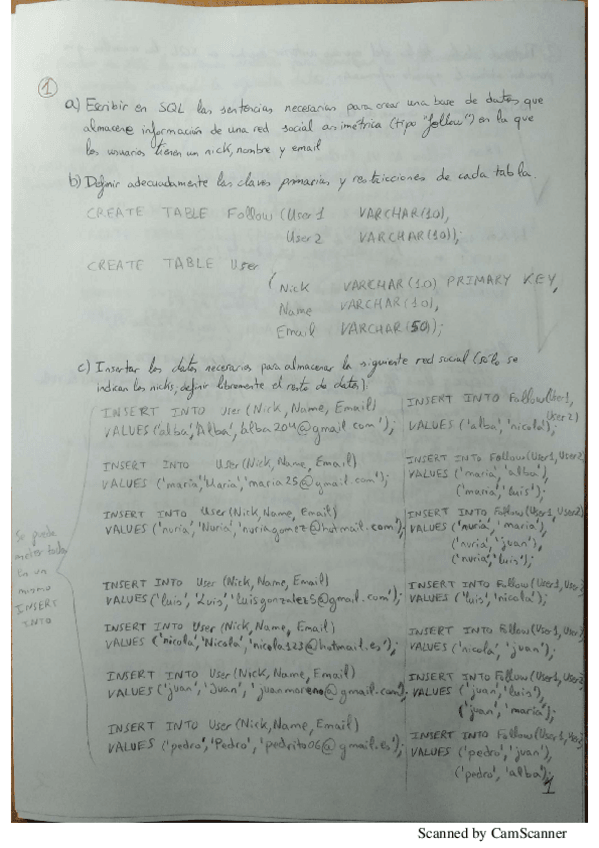 1
a) Escribir en SQL las sentencias necesarias para crear una base de datos que
almacene información de una red social asimétrica (tipo "follow") en la que
los usuarios tienen un nick, nombre y email
b) Definir adecuadamente las claves primarias y restricciones de cada tabla.
CREATE TABLE Follow (User1 VARCHAR(10),
User2 VARCHAR(10));
CREATE TABLE User
( Nick VARCHAR(10) PRIMARY KEY,
Name VARCHAR(10),
Email VARCHAR(50));
c) Insertar los datos necesarios para almacenar la siguiente red social (sólo se
indican los nicks; definir libremente el resto de datos).
INSERT INTO User (Nick, Name, Email)
VALUES ('alba', 'Alba', 'alba204@gmail.com');
INSERT INTO User (Nick, Name, Email)
VALUES ('maria', 'Maria', 'maria25@gmail.com');
INSERT INTO User (Nick, Name, Email)
VALUES ('nuria', 'Nuria', 'nuriagomez@hotmail.com');
INSERT INTO User (Nick, Name, Email)
VALUES ('luis', 'Luis', 'luisgonzalez5@gmail.com');
INSERT INTO User (Nick, Name, Email)
VALUES ('nicola', 'Nicola', 'nicola123@hotmail.es');
INSERT INTO User (Nick, Name, Email)
VALUES ('juan', 'Juan', 'juanmoreno@gmail.com');
INSERT INTO User (Nick, Name, Email)
VALUES ('pedro', 'Pedro', 'pedrito06@gmail.es');
Se puede
meter todo
en un
mismo
INSERT
INTO
INSERT INTO Follow (User1,
User2)
VALUES ('alba', 'nicola');
INSERT INTO Follow (User1, User2)
VALUES ('maria', 'alba')
('maria', 'luis');
INSERT INTO Follow (User1, User2)
VALUES ('nuria', 'maria'),
('nuria', 'juan'),
('nuria', 'luis');
INSERT INTO Follow (User1, User2)
VALUES ('luis', 'nicola');
INSERT INTO Follow (User1, User2)
VALUES ('nicola', 'juan');
INSERT INTO Follow (User1, User2)
VALUES ('juan', 'luis'),
('juan', 'maria');
INSERT INTO Follow (User1, User2)
VALUES ('pedro', 'juan'),
('pedro', 'alba');
1
Scanned by CamScanner